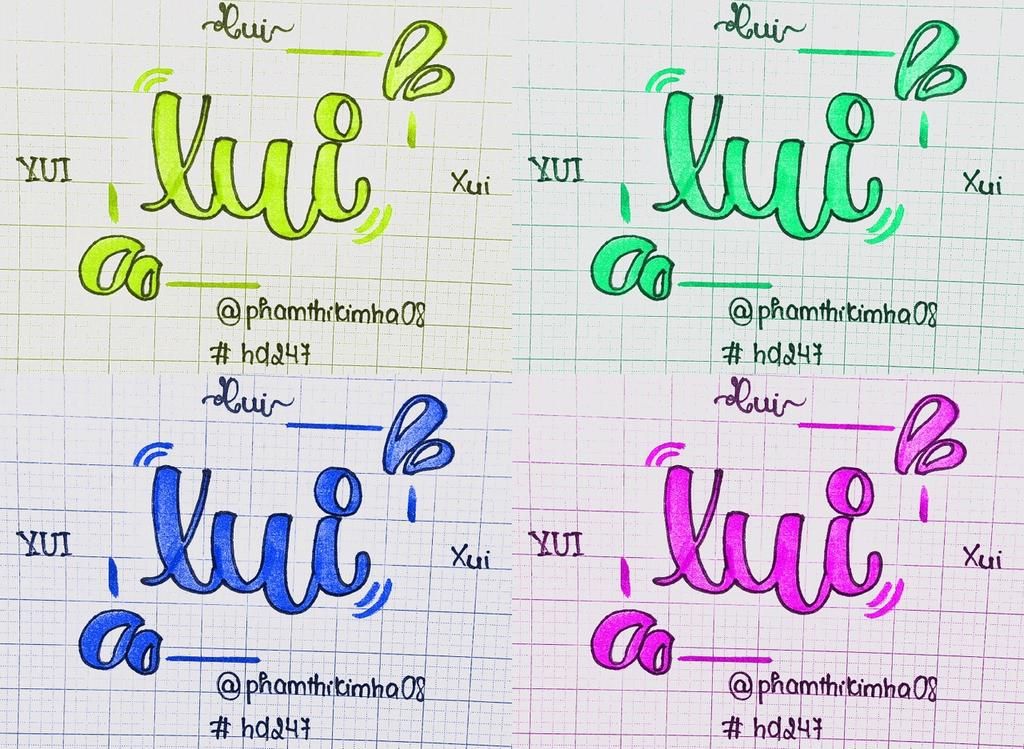 Xui
Xui
XUI
Xui
@phamthikimha08
# hd247
Xui
Xui
XUI
Xui
@phamthikimha08
# hd247
Xui
Xui
XUI
Xui
@phamthikimha08
# hd247
Xui
Xui
XUI
Xui
@phamthikimha08
# hd247